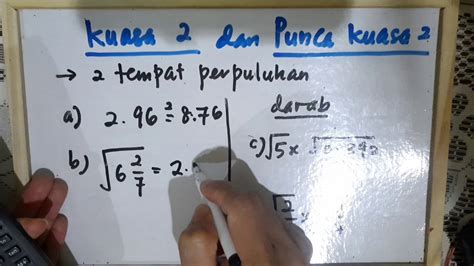 Kuasa 2 dan Punca kuasa 2
→ 2 tempat perpuluhan
a) 2.96² = 8.76
b) √6 2/7 = 2.
darab
c) √5 ×